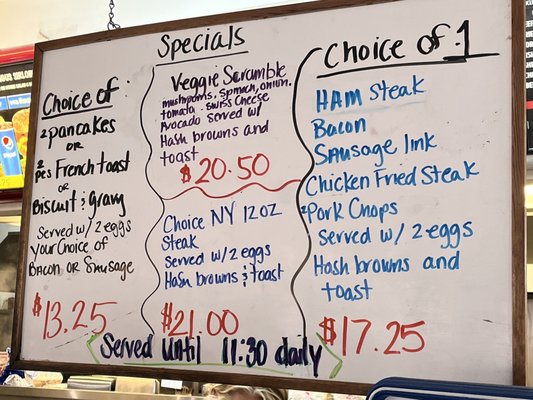 Specials
Choice of:
2 pancakes
or
2 pcs French toast
or
Biscuit & gravy
Served w/ 2 eggs
Your Choice of
Bacon or Sausage
$13.25
Veggie Scrumble
mushrooms, spinach, onion,
tomato, swiss cheese
Avocado served w/
Hash browns and
toast
$20.50
Choice NY 12oz
Steak
Served w/ 2 eggs
Hash browns & toast
$21.00
Choice of 1
HAM Steak
Bacon
Sausage link
Chicken Fried Steak
2 Pork Chops
Served w/ 2 eggs
Hash browns and
toast
$17.25
Served Until 11:30 daily